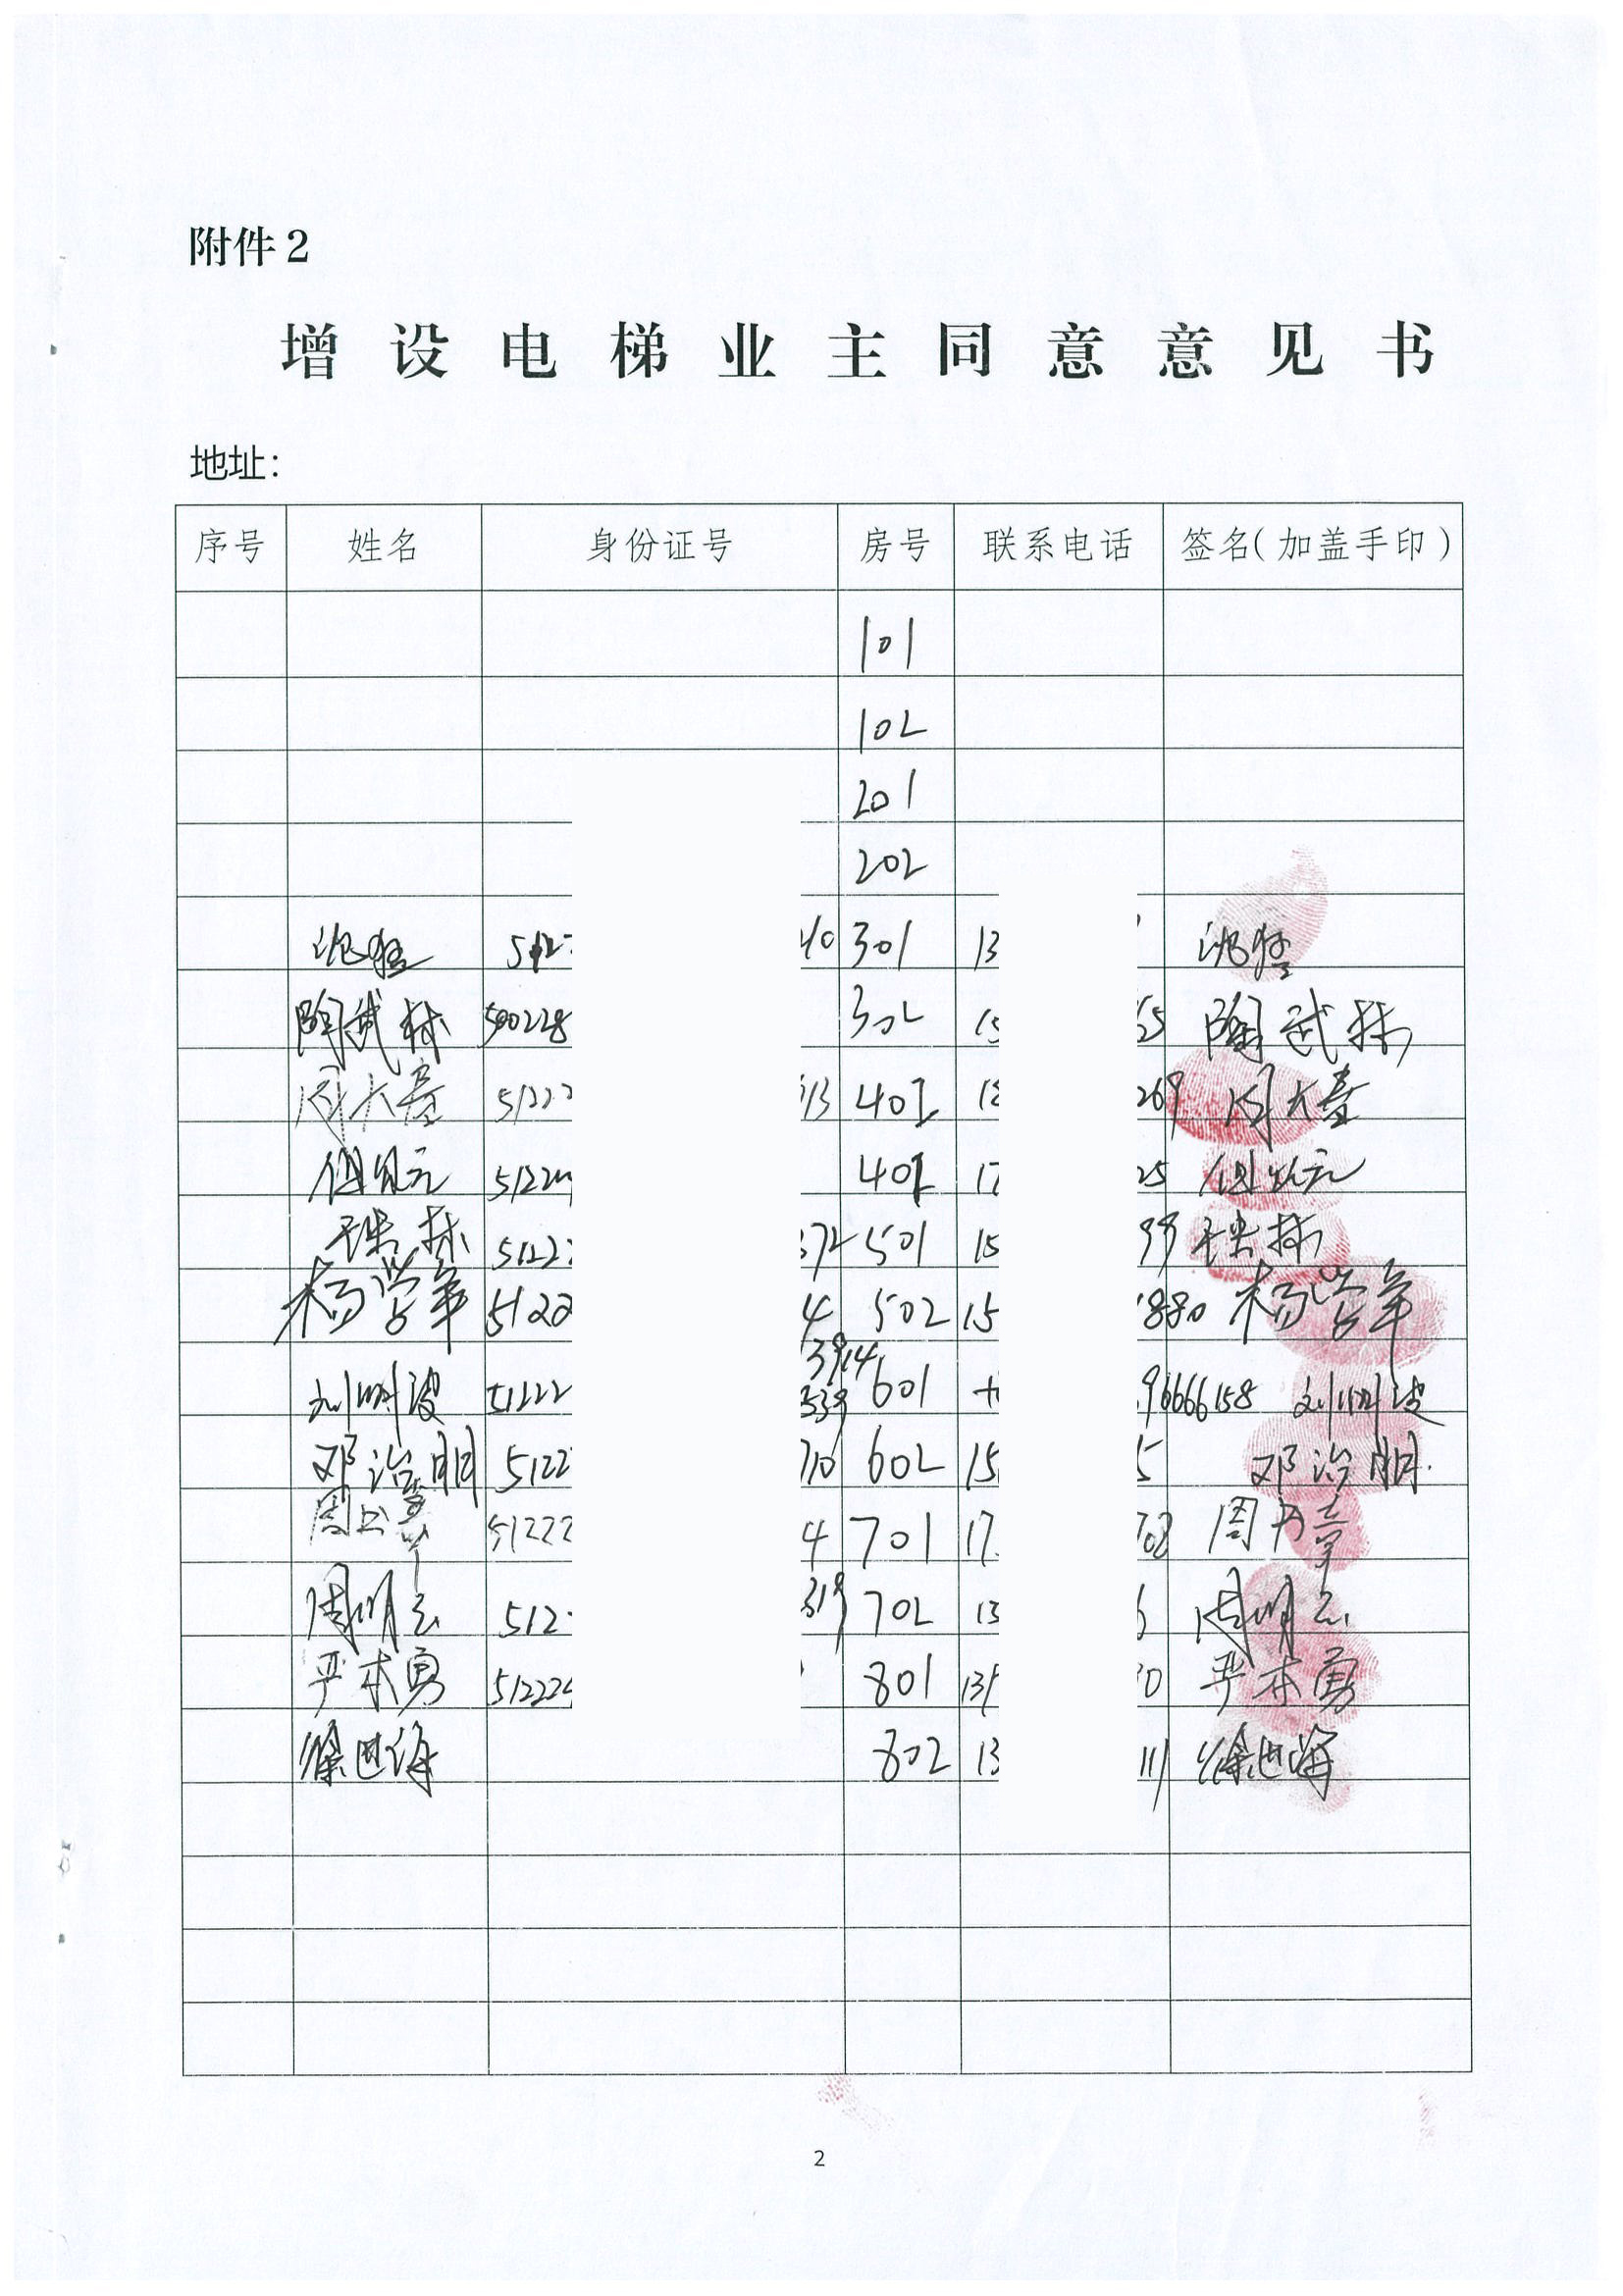 附件2
增设电梯业主同意意见书
地址：
序号 姓名 身份证号 房号 联系电话 签名(加盖手印)
101
102
201
202
512 40 301 13
陶武林 500228 302 15 55 陶武林
周大 5122 13 401 18 269 周大
5122 402 17 25
林 5122 372 501 15 99 林
杨学军 5122 4 502 15 1880 杨学军
3914
刘明波 51222 539 601 96666158 刘明波
邓治明 5122 710 602 15 5 邓治明
周 51222 4 701 17 702 周
周明 512 319 702 13 周明
严本勇 51222 801 13 0 严本勇
徐海 802 13 111 徐海
2